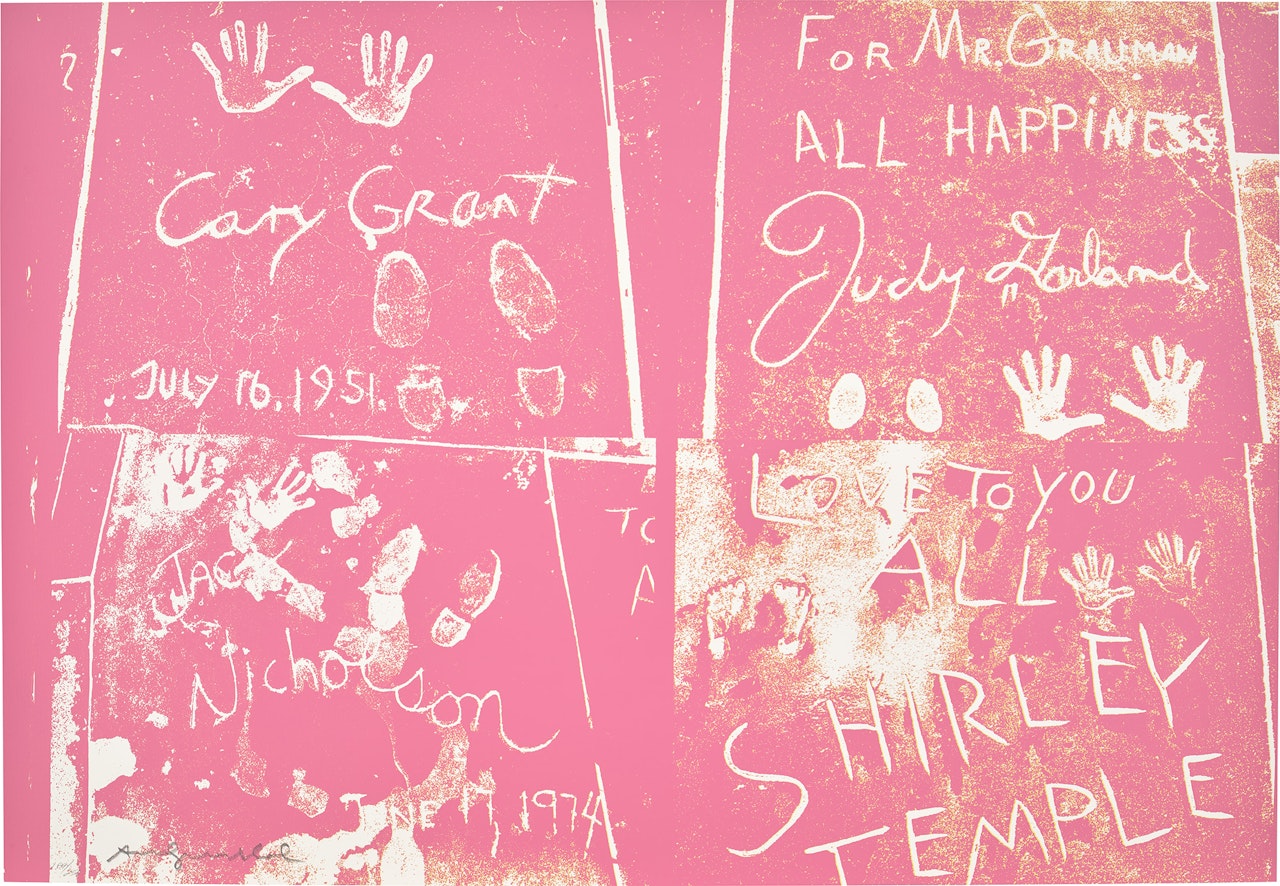 Cary Grant
JULY 16, 1951.
FOR MR. GRAUMAN
ALL HAPPINESS
Judy Garland
JACK
Nicholson
JUNE 17, 1974
TO
LOVE TO YOU
ALL
SHIRLEY
TEMPLE
Andy Warhol